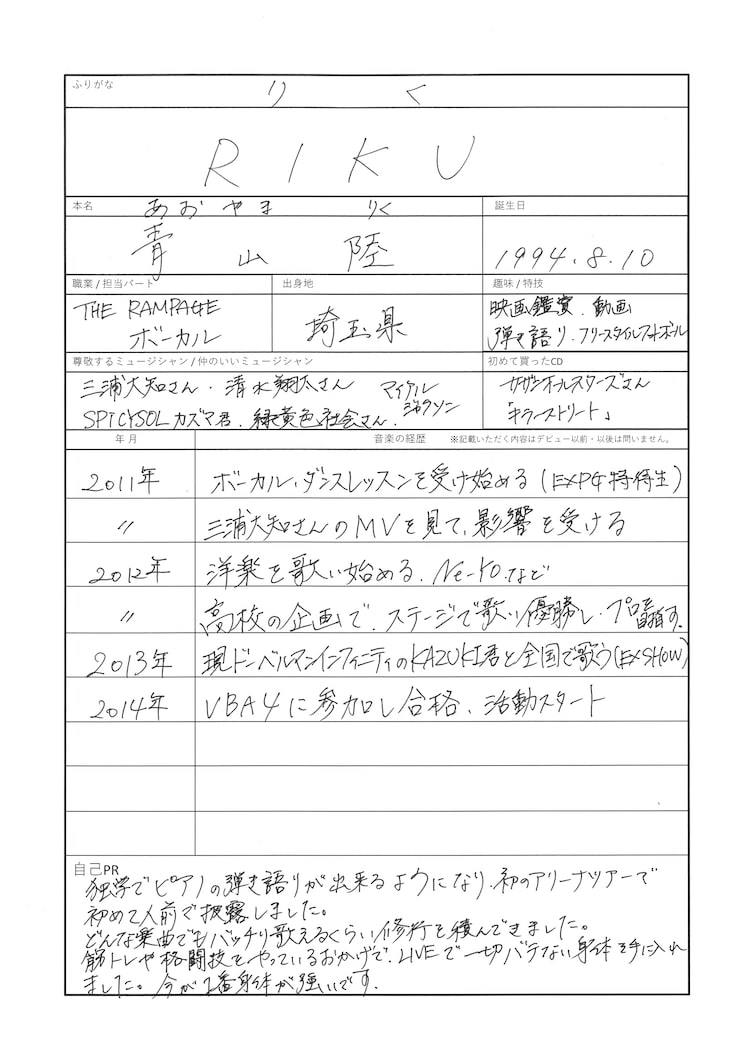 ふりがな
りく
RIKU
本名
あおやま りく
誕生日
青山 陸
1994.8.10
職業/担当パート
出身地
趣味/特技
THE RAMPAGE
ボーカル
埼玉県
映画鑑賞．動画
弾き語り．フリースタイルフットボール
尊敬するミュージシャン/仲のいいミュージシャン
初めて買ったCD
三浦大知さん・清水翔太さん マイケルジャクソン
SPiCYSOL カズマ君．緑黄色社会さん．
サザンオールスターズさん
「キラーストリート」
年月
音楽の経歴 ※記載いただく内容はデビュー以前・以後は問いません。
2011年 ボーカル・ダンスレッスンを受け始める（EXPG特待生）
〃 三浦大知さんのMVを見て、影響を受ける
2012年 洋楽を歌い始める．Ne-Yo．など
〃 高校の企画で．ステージで歌い優勝し・プロを目指す．
2013年 現ドーベルマンインフィニティのKAZUKI君と全国で歌う（EXSHOW）
2014年 VBA4に参加し合格、活動スタート
自己PR
独学でピアノの弾き語りが出来るようになり．初のアリーナツアーで
初めて人前で披露しました。
どんな楽曲でもバッチリ歌えるくらい修行を積んできました。
筋トレや格闘技をやっているおかげで．LIVEで一切バテない身体を手に入れ
ました。今が1番身体が強いです．